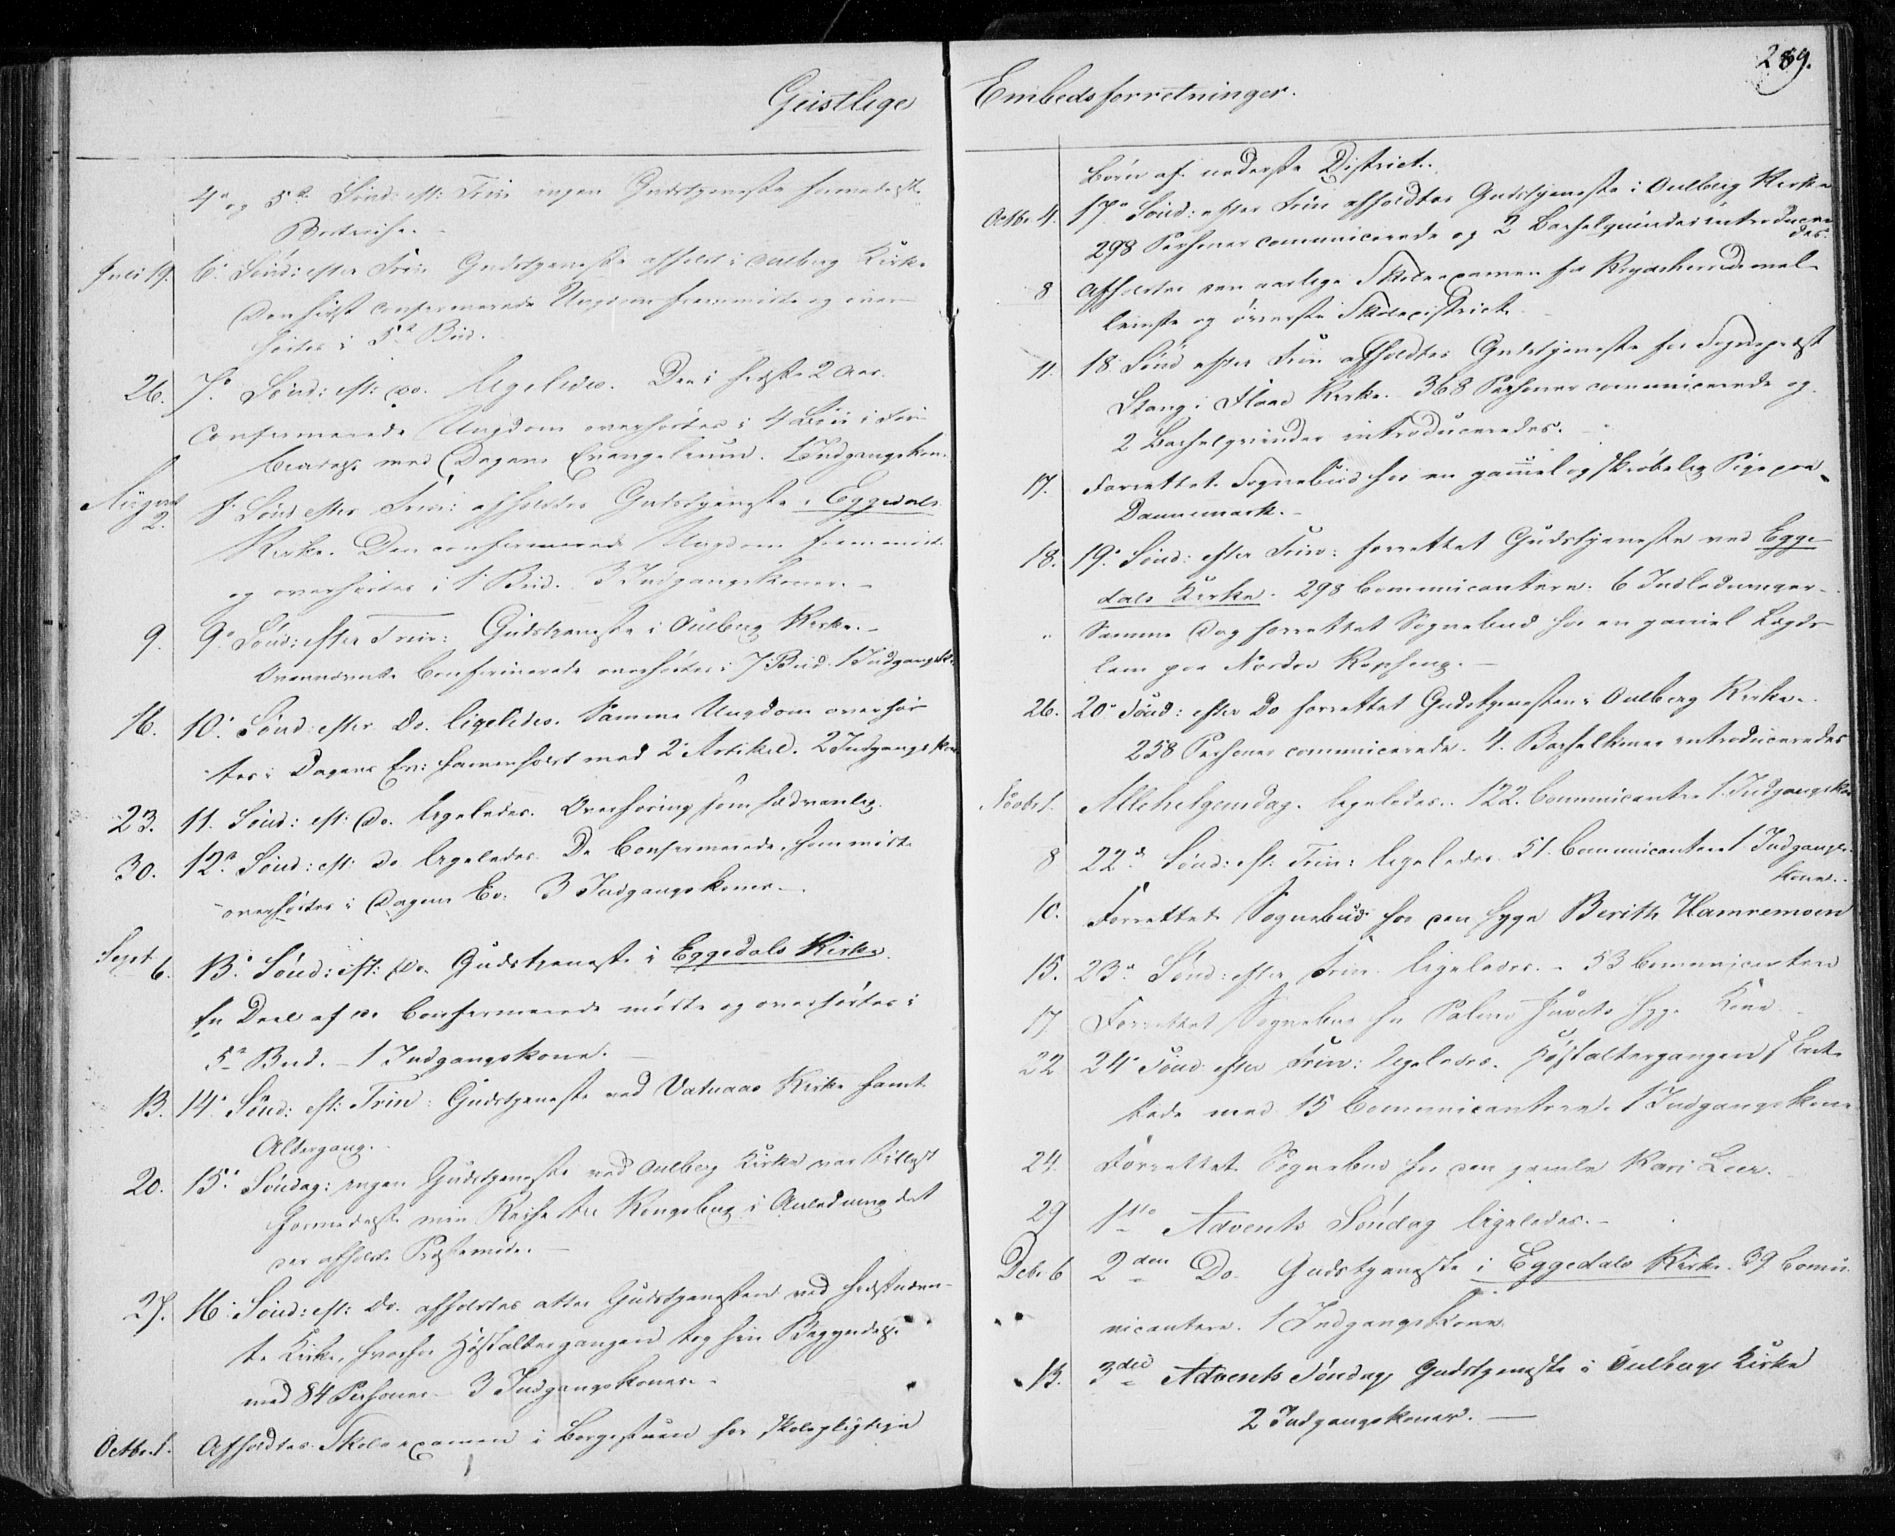 Geistlige Embedsforretninger.
289.
4de og 5te Sönd: eft: Trin ingen Gudstjeneste formedelst
Juli 19. 6. Sönd: efter Trin Gudstjeneste afholdt i Aulberg Kirke
Den sidst confirmerede Ungdom fremmödte og over
hörtes i 5te Bud.
26. 7de Sönd: eft: do. ligeledes. De i sidste 2 Aar
confirmerede Ungdom overhörtes i 4 Bön i
med Dagens Evangelium. 1 Indgangskone.
August 2. 8 Sönd efter Trin: afholdtes Gudstjeneste i Eggedals
Kirke. Den confirmerede Ungdom fremmödte
og overhörtes i 1 Bud. 3 Indgangskoner. –
9. 9de Sönd: efter Trin: Gudstjeneste i Aulberg Kirke. –
Ovennævnte Confirmerede overhörtes i 7 Bud. 1 Indgangsk.
16. 10. Sönd: efter Do. ligeledes. Samme Ungdom overhör
tes i Dagens Ev: sammenholdt med 2 Artikel. 2 Indgangskon
23. 11. Sönd: eft: Do. ligeledes. Overhöring som sædvanlig.
30. 12te Sönd: eft: do ligeledes. De Confirmerede, som mödte
overhörtes i Dagens Ev. 3 Indgangskoner. –
Sept 6. 13. Sönd: eft: Do. Gudstjeneste i Eggedals Kirke.
En Deel af de Confirmerede mödte og overhörtes i
5te Bud. – 1 Indgangskone. –
13. 14. Sönd: eft: Trin: Gudstjeneste ved Vatnaas Kirke samt
Altergang.
20. 15. Söndag: ingen Gudstjeneste ved Aulberg Kirke var tillyst
formedelst min Reise til Kongsberg i Anledning det
der afholdte Præstemöde. –
27. 16. Sönd: eft: Do. afholdtes atter Gudstjenesten ved sidstnævn-
te Kirke, hvorhos Höstaltergangen tog sin Begyndelse
med 84 Personer – 3 Indgangskoner. –
Octbr 1. Afholdtes Skoleexamen i Borgestuen for skolepligtige
Börn af nederste District.
Octbr 4. 17de Sönd: efter Trin afholdtes Gudstjeneste i Aulberg Kirke
298 Personer communicerede og 2 Barselqvinder introducere
des.
8 Afholdtes den aarlige Skoleexamen for
og överste Skoledistrict.
11. 18 Sönd efter Trin afholdtes Gudstjeneste for Sognepræst
Stang i Flaae Kirke. 368 Personer communicerede og
2 Barselqvinder introduceredes. –
17. Forrettet Sognebud hos en gammel og skröbelig Pige paa
Dannemark. –
18. 19. Sönd: efter Trin: forrettet Gudstjeneste ved Egge
dals Kirke. 298 Communicantere. 6 Indledninger –
" Samme Dag forrettet Sognebud hos en gammel Lægds-
lem paa Nordre –
26. 20de Sönd: efter Do forrettet Gudstjenesten i Aulberg Kirke.
258 Personer communicerede. 4 Barselkoner introduceredes
Novbr 1. Allehelgensdag. ligeledes. 122 Communicantere 1 Indgangskone
8 22de Sönd: eft: Trin: ligeledes. 51. Communicantere 1 Indgangs-
kone. –
10. Forrettet Sognebud hos den syge Berith Hamremoen
15. 23de Sönd: efter Trin ligeledes. – 53 Communicantere
17 Forrettet Sognebud hos syge Kone
22 24de Sönd: efter Trin: ligeledes. Höstaltergangen slut-
tede med 15 Communicantere. 1 Indgangskone
24. Forrettet Sognebud hos den gamle Kari Leer.
29 1ste Advents Söndag ligeledes. –
Debr 6 2den Do. Gudstjeneste i Eggedals Kirke. 39 Commu
nicantere. 1 Indgangskone
13. 3die Advents Söndag Gudstjeneste i Aulbergs Kirke
2 Indgangskoner. –